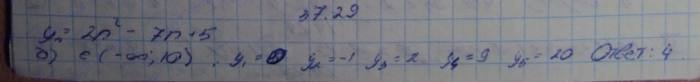 37.29
yₙ = 2n² - 7n + 5
б) ∈ (-∞; 10). y₁ = 0 y₂ = -1 y₃ = 2 y₄ = 9 y₅ = 20 Ответ: 4